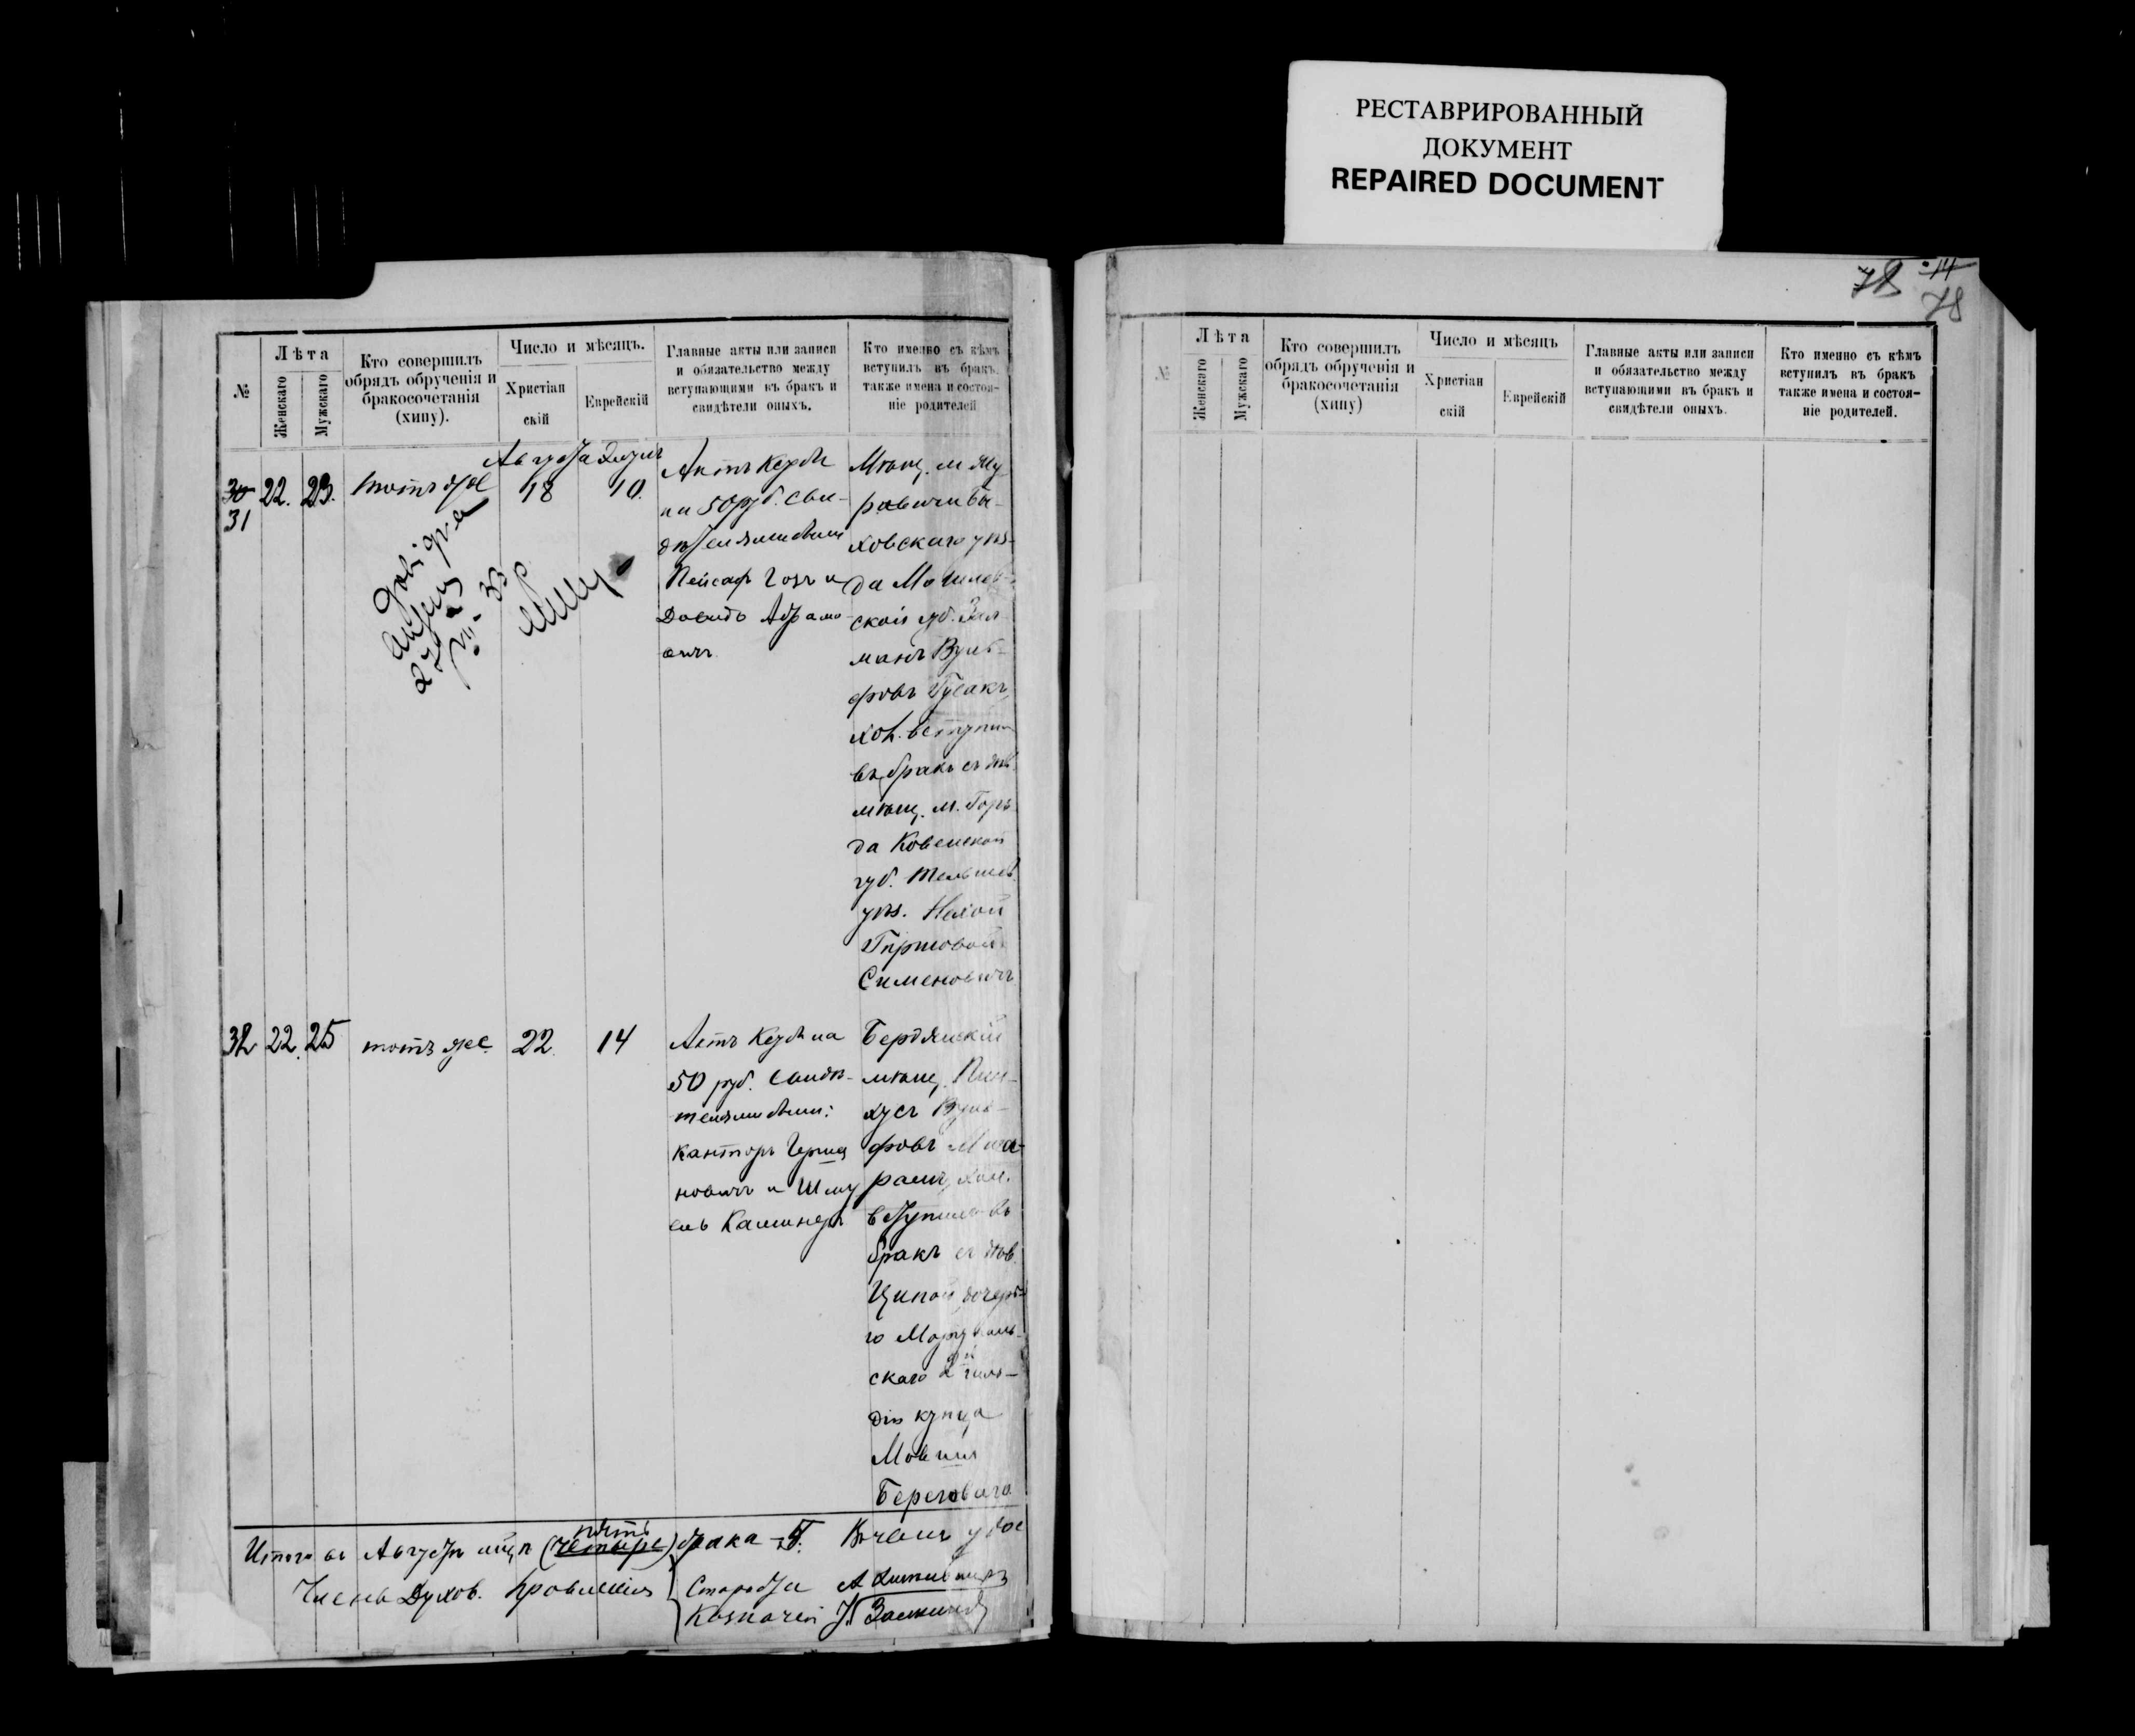 РЕСТАВРИРОВАННЫЙ
ДОКУМЕНТ
REPAIRED DOCUMENT
№
Лѣта
Женскаго
Мужскаго
Кто совершилъ
обрядъ обрученія и
бракосочетанія
(хипу).
Число и мѣсяцъ.
Христіан
скій
Еврейскій
Главные акты или записи
и обязательство между
вступающими въ бракъ и
свидѣтели оныхъ.
Кто именно съ кѣмъ
вступилъ въ бракъ
также имена и состоя-
ніе родителей
30
31
22.
23.
тотъ же
Августа
18
10.
Актъ Кедби
на 50 руб. Сви-
Пейсах Гозъ и
Довидъ Абрамо
вичъ
Мѣщ. м.
ховскаго уѣз-
да Могилев-
ской губ. Зал
манъ Вуль-
фовъ Гусакъ,
хол. вступил
въ бракъ съ дѣв.
мѣщ. м. Горж
да Ковенской
губ. Тельшев.
уѣз. Нехой
Гиршовой
Сименовичъ
32
22.
25
тотъ же.
22
14
Актъ Кедби на
50 руб. Свидѣ-
телями были:
Канторъ Герша
новичъ и Шму
ель Каминеръ
Бердянскій
мѣщ. Пин-
хусъ Вуль-
фовъ
хол.
вступилъ въ
бракъ съ дѣв.
Ципой дочерь-
ю Маріуполь-
скаго 2й гиль-
діи купца
Мовши
Береговаго
Итого въ Августѣ мцѣ (четыре) пять брака - 5.
Члены Духов. Правленія
Староста
Казначей
78
14
78
№
Лѣта
Женскаго
Мужскаго
Кто совершилъ
обрядъ обрученія и
бракосочетанія
(хипу)
Число и мѣсяцъ
Христіан
скій
Еврейскій
Главные акты или записи
и обязательство между
вступающими въ бракъ и
свидѣтели оныхъ.
Кто именно съ кѣмъ
вступилъ въ бракъ
также имена и состоя-
ніе родителей.